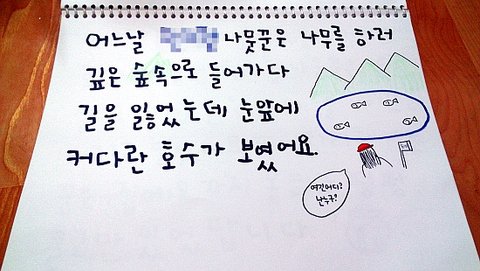 어느날 나뭇꾼은 나무를 하러
깊은 숲속으로 들어가다
길을 잃었는데 눈앞에
커다란 호수가 보였어요.
여긴어디?
난누구?